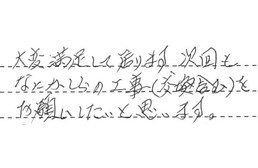 大変満足して居ります 次回も
なにかしらの工事(交換含む)を
お願いしたいと思います。